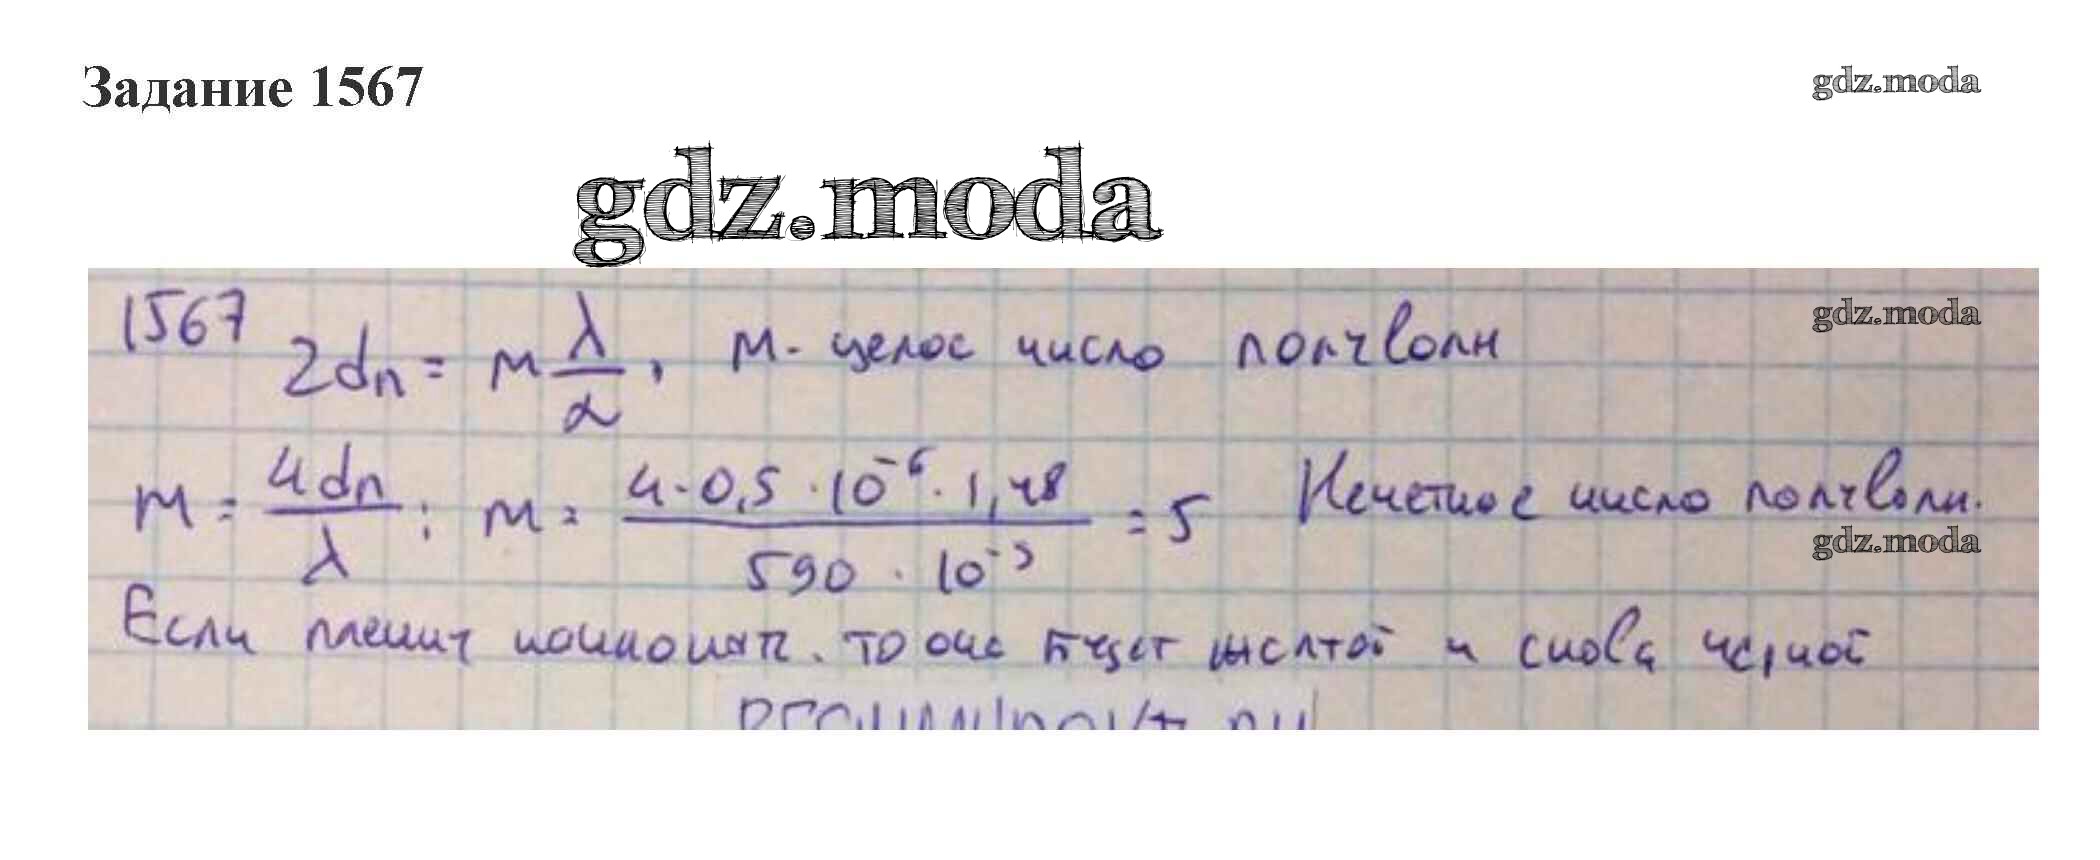 Задание 1567
gdz.moda
gdz.moda
1567
2dn = m λ/2, m - целое число полуволн
gdz.moda
m = 4dn/λ; m = 4·0,5·10⁻⁶·1,48/590·10⁻⁹ = 5 Нечетное число полуволн.
gdz.moda
Если пленку наклонять. то она будет желтой и снова черной